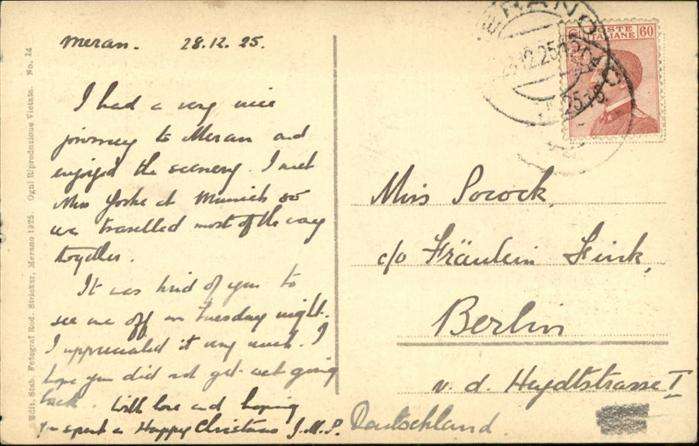 Meran. 28.12.25.
I had a very nice
journey to Meran and
enjoyed the scenery. I met
Miss Yorke at Munich so
we travelled most of the way
together.
It was kind of you to
see me off on Tuesday night.
I appreciated it very much. I
hope you did not get wet going
back. With love and hoping
you spent a Happy Christmas J.M.P.
POSTE
ITALIANE
60
MERANO
Miss
c/o Fräulein Fink,
Berlin
v. d. Heydtstrasse I
Deutschland
Ediz. Stab. Fotograf Rod. Stricker, Merano 1925. Ogni Riproduzione Vietata. No. 24